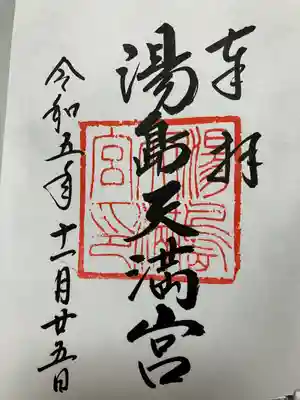 奉拝
湯島天満宮
令和五年十一月廿五日